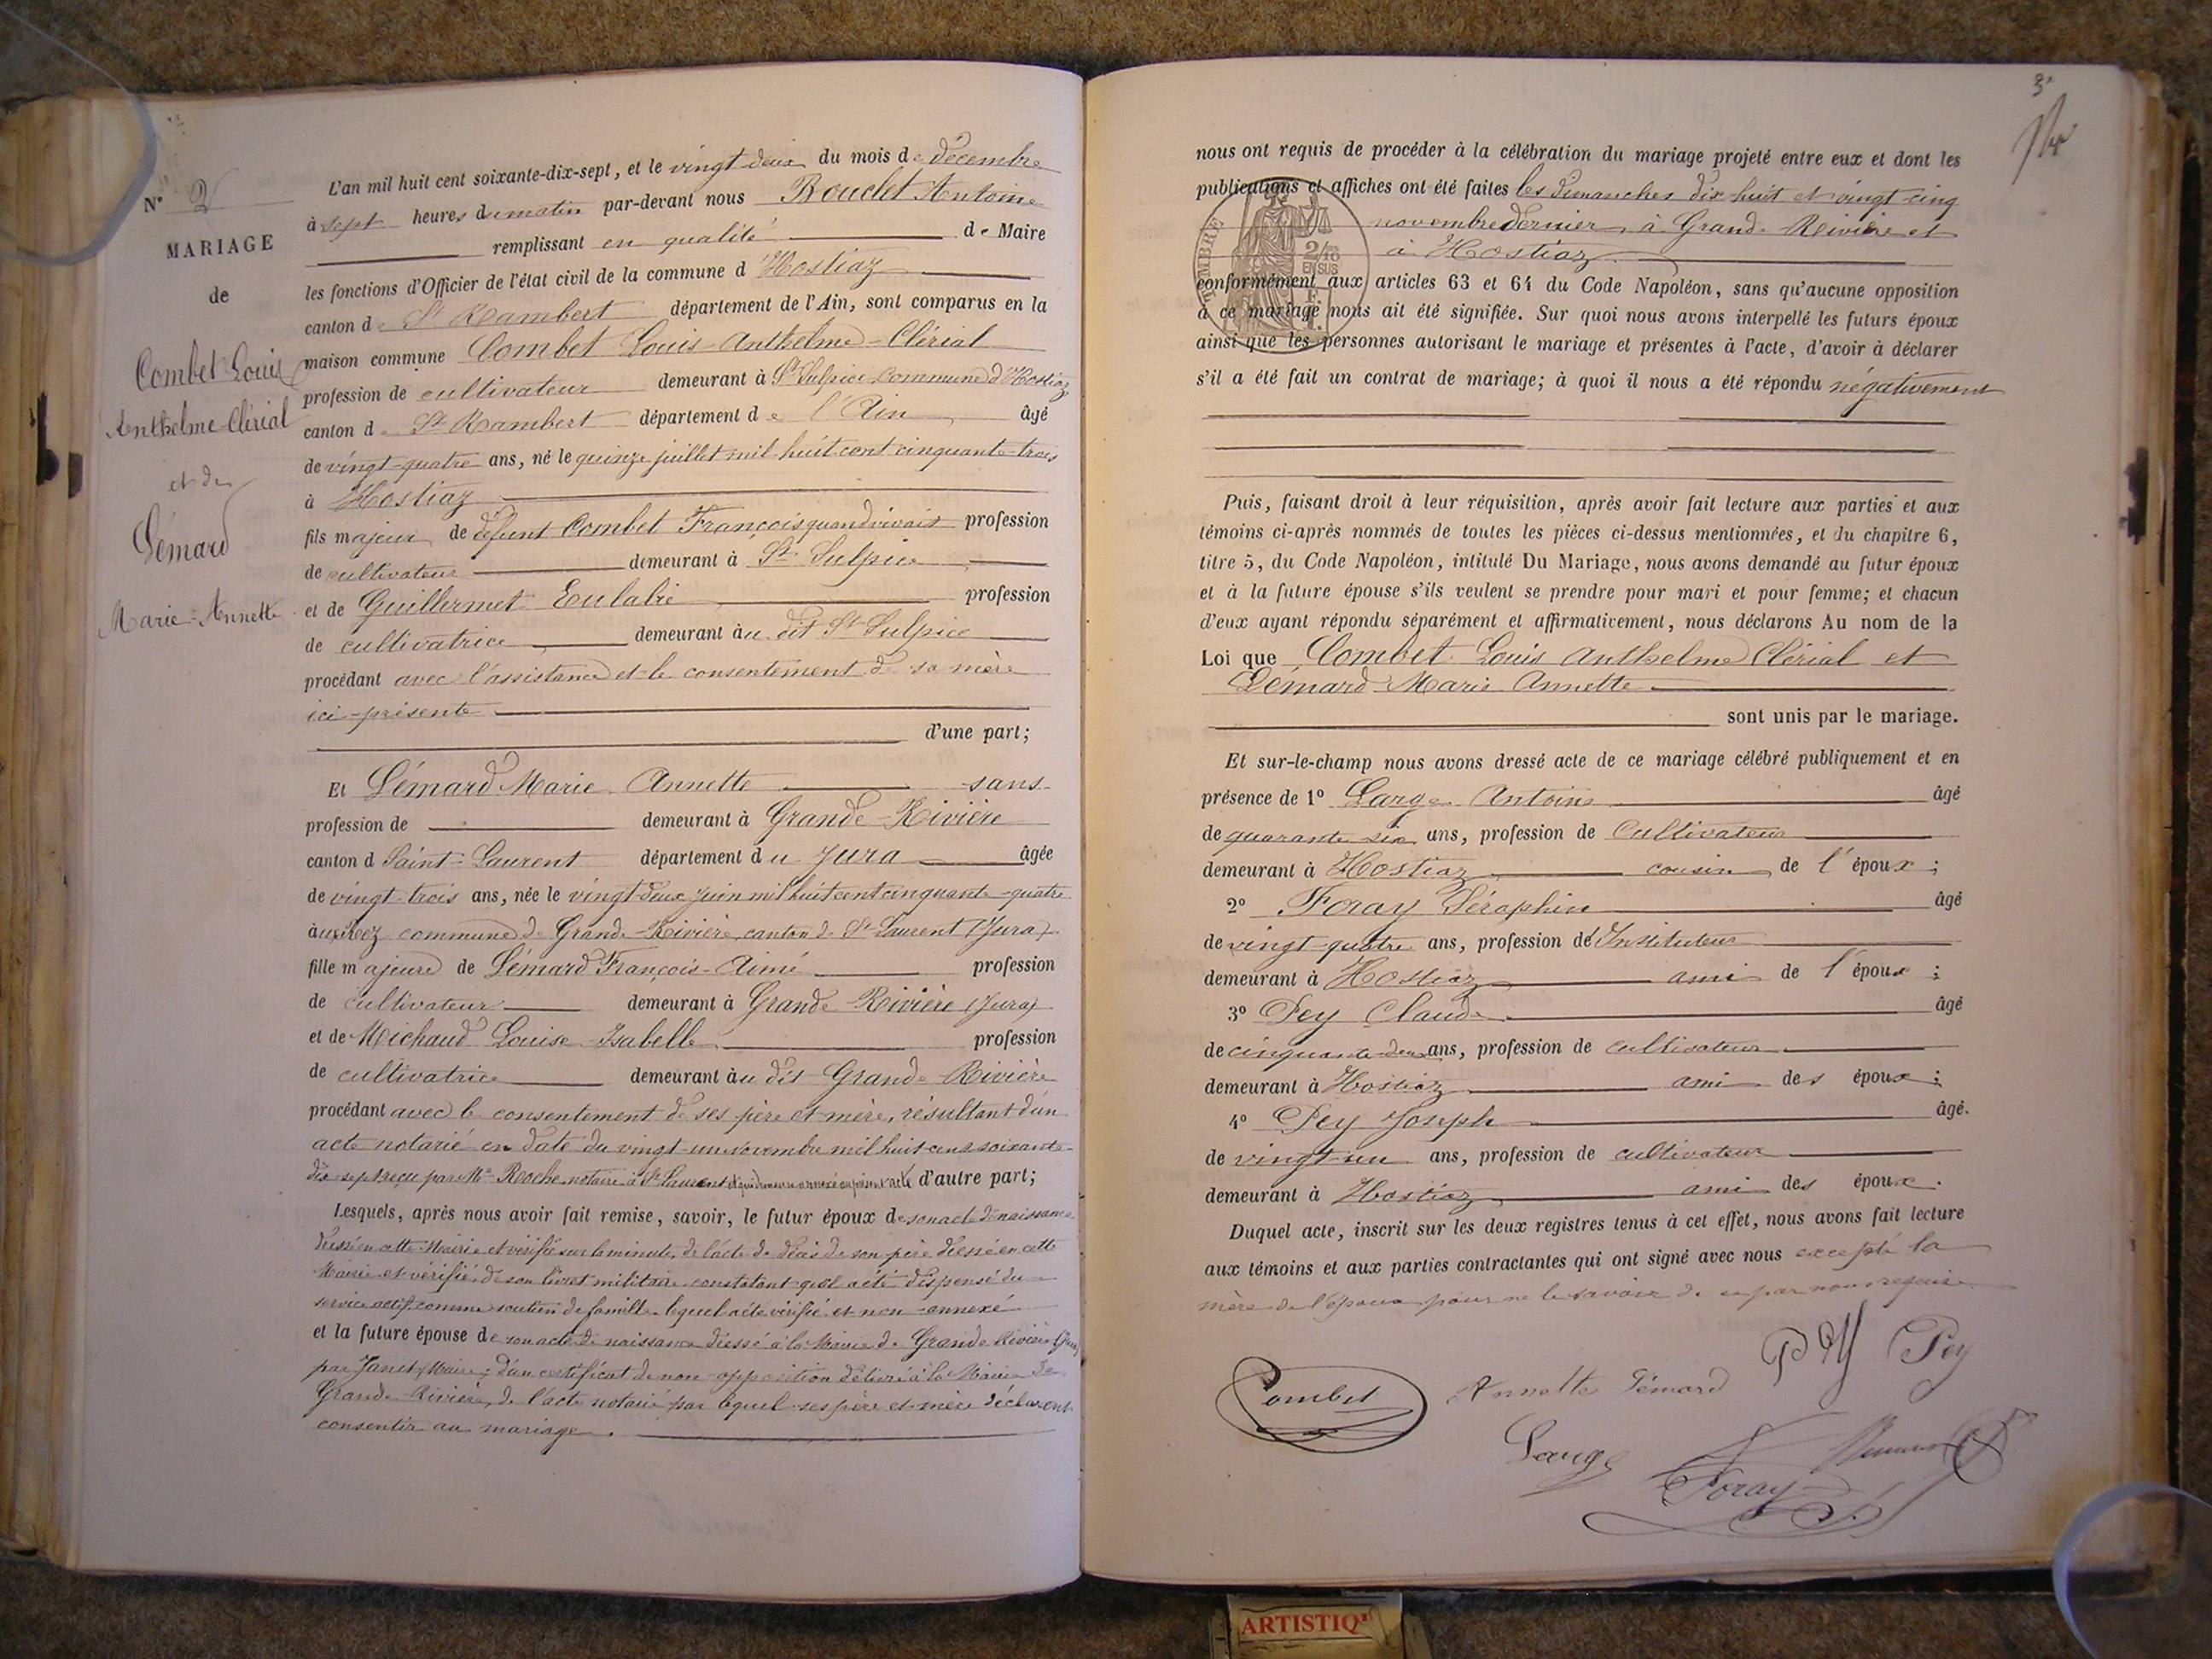 N° 2
MARIAGE
de
Combet Louis
Anthelme-Clérial
et de
Lémard
Marie-Annette
L'an mil huit cent soixante-dix-sept, et le vingt deux du mois de décembre
à sept heures du matin par-devant nous Bouclet Antoine
remplissant en qualité de Maire
les fonctions d'Officier de l'état civil de la commune d'Hostiaz
canton de St Rambert département de l'Ain, sont comparus en la
maison commune Combet Louis-Anthelme-Clérial
profession de cultivateur demeurant à St Sulpice commune d'Hostiaz
canton de St Rambert département de l'Ain âgé
de vingt-quatre ans, né le quinze juillet mil huit cent cinquante-trois
à Hostiaz
fils majeur de défunt Combet François quand vivait profession
de cultivateur demeurant à St Sulpice
et de Guillermet Eulalie profession
de cultivatrice demeurant au dit St Sulpice
procédant avec l'assistance et le consentement de sa mère
ici-présente
d'une part;
Et Lémard Marie Annette sans
profession de demeurant à Grande-Rivière
canton d Saint-Laurent département du Jura âgée
de vingt-trois ans, née le vingt-deux juin mil huit cent cinquante-quatre
aux commune de Grande-Rivière, canton de St Laurent (Jura)
fille majeure de Lémard François-Aimé profession
de cultivateur demeurant à Grande-Rivière (Jura)
et de Michaud Louise-Isabelle profession
de cultivatrice demeurant au dit Grande-Rivière
procédant avec le consentement de ses père et mère, résultant d'un
acte notarié en date du vingt-un novembre mil huit cent soixante-
dix-sept reçu par Me Roche notaire à St Laurent et qui demeure annexé au présent acte d'autre part;
Lesquels, après nous avoir fait remise, savoir, le futur époux de son acte de naissance
dressé en cette Mairie et vérifié sur la minute, de l'acte de décès de son père dressé en cette
Mairie et vérifié, de son livret militaire constatant qu'il a été dispensé du
service actif comme soutien de famille lequel a été vérifié et non annexé
et la future épouse de son acte de naissance dressé à la Mairie de Grande-Rivière (Jura)
par Janet, Maire; d'un certificat de non-opposition délivré à la Mairie de
Grande-Rivière, de l'acte notarié par lequel ses père et mère déclarent
consentir au mariage.
3
nous ont requis de procéder à la célébration du mariage projeté entre eux et dont les
publications et affiches ont été faites les dimanches dix-huit et vingt cinq
novembre dernier à Grande-Rivière et
à Hostiaz
TIMBRE
2/10
EN SUS
conformément aux articles 63 et 64 du Code Napoléon, sans qu'aucune opposition
à ce mariage nous ait été signifiée. Sur quoi nous avons interpellé les futurs époux
ainsi que les personnes autorisant le mariage et présentes à l'acte, d'avoir à déclarer
s'il a été fait un contrat de mariage; à quoi il nous a été répondu négativement
Puis, faisant droit à leur réquisition, après avoir fait lecture aux parties et aux
témoins ci-après nommés de toutes les pièces ci-dessus mentionnées, et du chapitre 6,
titre 5, du Code Napoléon, intitulé Du Mariage, nous avons demandé au futur époux
et à la future épouse s'ils veulent se prendre pour mari et pour femme; et chacun
d'eux ayant répondu séparément et affirmativement, nous déclarons Au nom de la
Loi que Combet Louis Anthelme Clérial et
Lémard Marie Annette
sont unis par le mariage.
Et sur-le-champ nous avons dressé acte de ce mariage célébré publiquement et en
présence de 1° Large Antoine âgé
de quarante six ans, profession de Cultivateur
demeurant à Hostiaz cousin de l'époux;
2° Foray Séraphin âgé
de vingt-quatre ans, profession d'Instituteur
demeurant à Hostiaz ami de l'époux;
3° Pey Claude âgé
de cinquante-deux ans, profession de cultivateur
demeurant à Hostiaz ami des époux;
4° Pey Joseph âgé
de vingt-un ans, profession de cultivateur
demeurant à Hostiaz ami des époux.
Duquel acte, inscrit sur les deux registres tenus à cet effet, nous avons fait lecture
aux témoins et aux parties contractantes qui ont signé avec nous excepté la
mère de l'époux pour ne le savoir de ce par nous requise
Pey
Combet
Annette Lémard
Large
Foray
ARTISTIQ